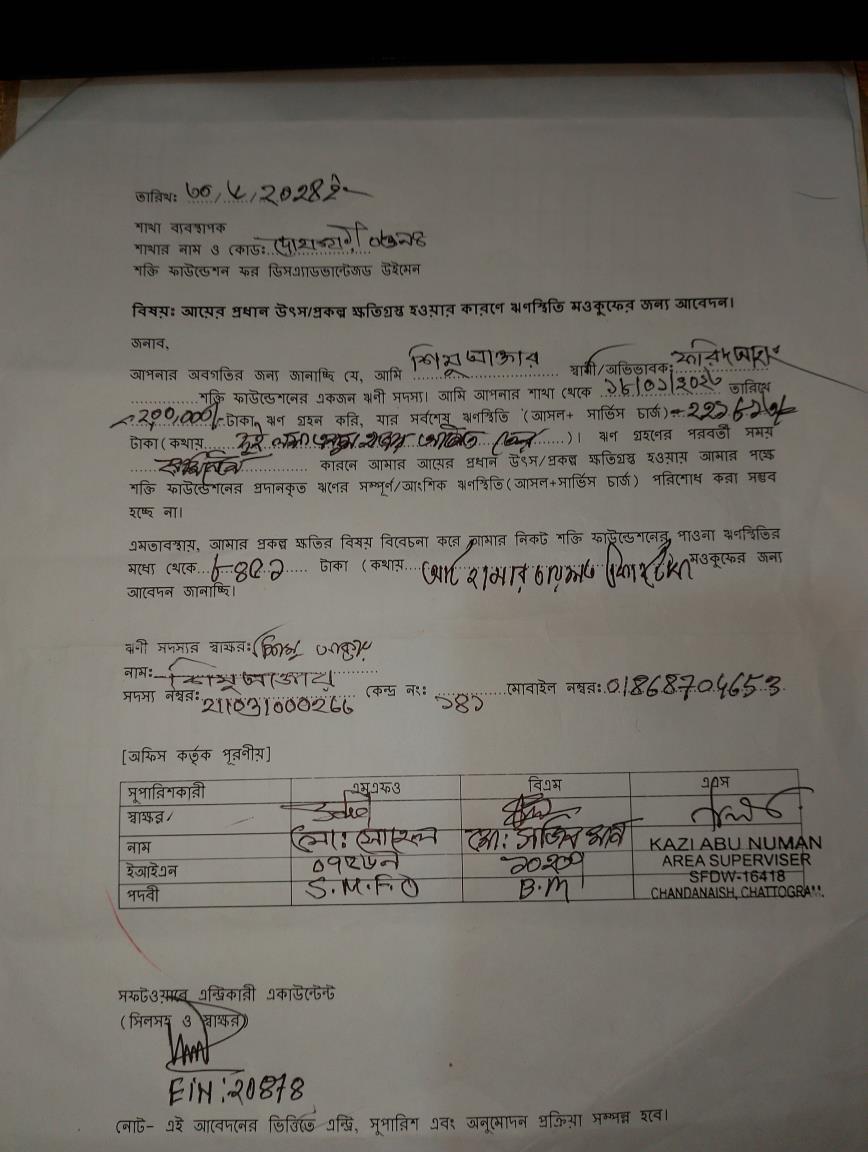 তারিখ: ৩০/৫/২০২৪ ইং
শাখা ব্যবস্থাপক
শাখার নাম ও কোড:
শক্তি ফাউন্ডেশন ফর ডিসএ্যাডভান্টেজড উইমেন
বিষয়: আয়ের প্রধান উৎস/প্রকল্প ক্ষতিগ্রস্ত হওয়ার কারণে ঋণস্থিতি মওকুফের জন্য আবেদন।
জনাব,
আপনার অবগতির জন্য জানাচ্ছি যে, আমি শিমু আক্তার স্বামী/অভিভাবক: ফরিদ
শক্তি ফাউন্ডেশনের একজন ঋনী সদস্য। আমি আপনার শাখা থেকে তারিখে
২,০০,০০০/- টাকা ঋণ গ্রহন করি, যার সর্বশেষ ঋণস্থিতি (আসল+ সার্ভিস চার্জ)
টাকা (কথায় দুই লক্ষ )। ঋণ গ্রহনের পরবর্তী সময়
কারনে আমার আয়ের প্রধান উৎস/প্রকল্প ক্ষতিগ্রস্ত হওয়ায় আমার পক্ষে
শক্তি ফাউন্ডেশনের প্রদানকৃত ঋনের সম্পূর্ণ/আংশিক ঋণস্থিতি (আসল+সার্ভিস চার্জ) পরিশোধ করা সম্ভব
হচ্ছে না।
এমতাবস্থায়, আমার প্রকল্প ক্ষতির বিষয় বিবেচনা করে আমার নিকট শক্তি ফাউন্ডেশনের পাওনা ঋণস্থিতির
মধ্যে থেকে টাকা (কথায় হাজার মওকুফের জন্য
আবেদন জানাচ্ছি।
ঋনী সদস্যর স্বাক্ষর: শিমু আক্তার
নাম: শিমু আক্তার
সদস্য নম্বর: 211031000266 কেন্দ্র নং: ১৪১ মোবাইল নম্বর: 01868704653
[অফিস কর্তৃক পূরনীয়]
সুপারিশকারী এমএফও বিএম এএস
স্বাক্ষর
নাম মো: সোহেল মো:
KAZI ABU NUMAN
AREA SUPERVISER
ইআইএন
SFDW-16418
পদবী S.M.F.O B.M
CHANDANAISH, CHATTOGRAM.
সফটওয়ারে এন্ট্রিকারী একাউন্টেন্ট
(সিলসহ ও স্বাক্ষর)
EIN: 20878
নোট- এই আবেদনের ভিত্তিতে এন্ট্রি, সুপারিশ এবং অনুমোদন প্রক্রিয়া সম্পন্ন হবে।